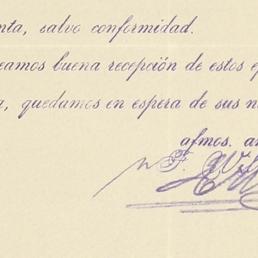 nta, salvo conformidad.
eamos buena recepción de estos ef
a, quedamos en espera de sus n
afmos. am